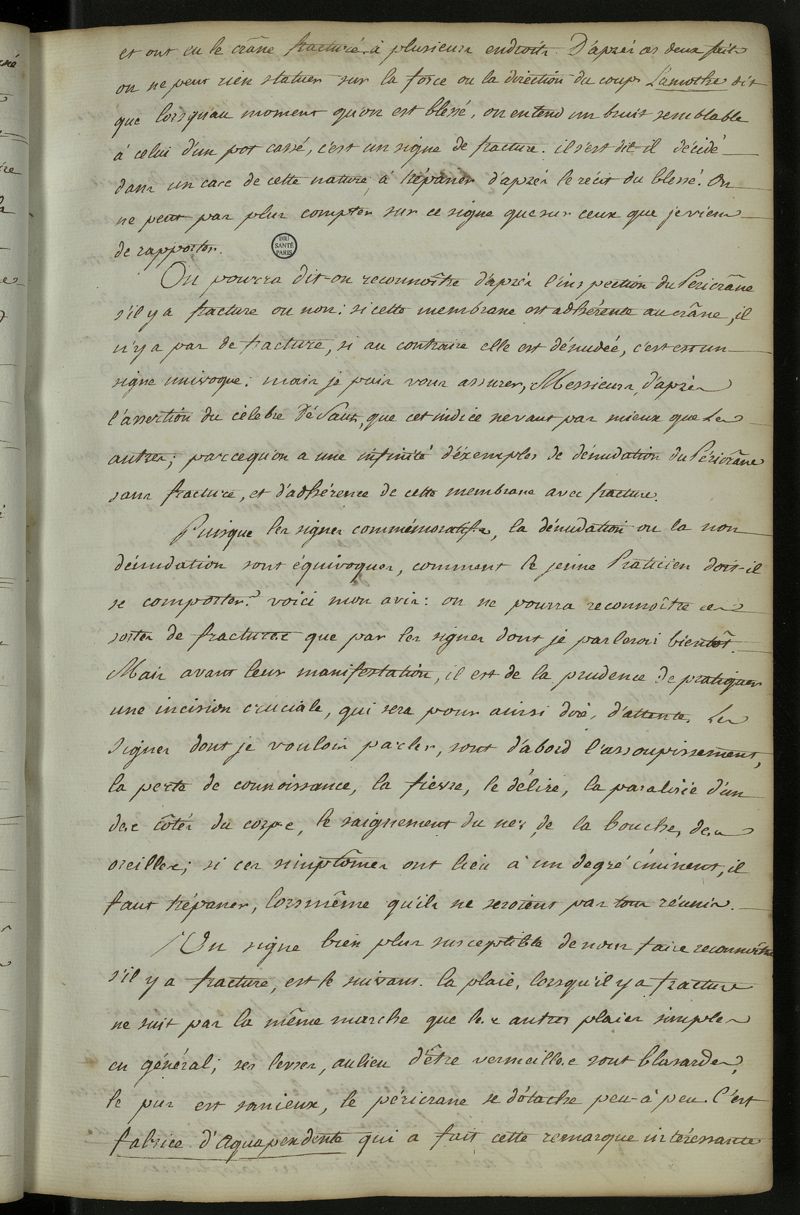 et ont eu le crâne fracturé à plusieurs endroits. D'après ces deux faits
on ne peut rien statuer sur la force ou la direction du coup. Lamothe dit
que lorsqu'au moment qu'on est blessé, on entend un bruit semblable
à celui d'un pot cassé, c'est un signe de fracture. il s'est dit-il décidé
dans un cas de cette nature, à trépaner d'après le récit du blessé. On
ne peut pas plus compter sur ce signe que sur ceux que je viens
de rapporter.
BIU
SANTÉ
PARIS
On pourra dit-on reconnoître d'après l'inspection du Péricrâne
s'il y a fracture ou non; si cette membrane est adhérente au crâne, il
n'y a pas de fracture, si au contraire elle est dénudée, c'est un
signe univoque; mais je puis vous assurer, Messieurs, d'après
l'assertion du célebre Désault, que cet indice ne vaut pas mieux que les
autres; parcequ'on a une infinité d'éxemples de dénudation du Péricrâne
sans fracture, et d'adhérence de cette membrane avec fracture.
Puisque les signes commémoratifs, la dénudation ou la non
dénudation sont équivoques, comment le jeune Praticien doit-il
se comporter? voici mon avis: on ne pourra reconnoître ces
sortes de fractures que par les signes dont je parlerai bientôt.
Mais avant leur manifestation, il est de la prudence de pratiquer
une incision cruciale, qui sera pour ainsi dire, d'attente. Les
signes dont je voulois parler, sont d'abord l'assoupissement,
la perte de connoissance, la fièvre, le délire, la paralisie d'un
des côtés du corps, le saignement du nez, de la bouche, des
oreilles; si ces simptômes ont lieu à un degré éminent, il
faut trépaner, lors même qu'ils ne seroient pas tous réunis.
Un signe bien plus susceptible de nous faire reconnoître
s'il y a fracture, est le suivant. la plaie, lorsqu'il y a fracture
ne suit pas la même marche que les autres plaies simples
en général; ses levres, au lieu d'être vermeilles sont blafardes,
le pus est sanieux, le péricrane se détache peu-à-peu. C'est
fabrice d'aquapendente qui a fait cette remarque intéressante